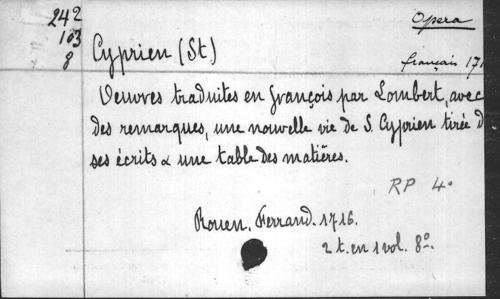 242
103
8
Opera
Cyprien (St)
français 171
Oeuvres traduites en françois par Lombert, avec
des remarques, une nouvelle vie de S. Cyprien tirée d
ses écrits & une table des matières.
RP 4°
Rouen. Ferrand. 1716.
2 t. en 1 vol. 8°.